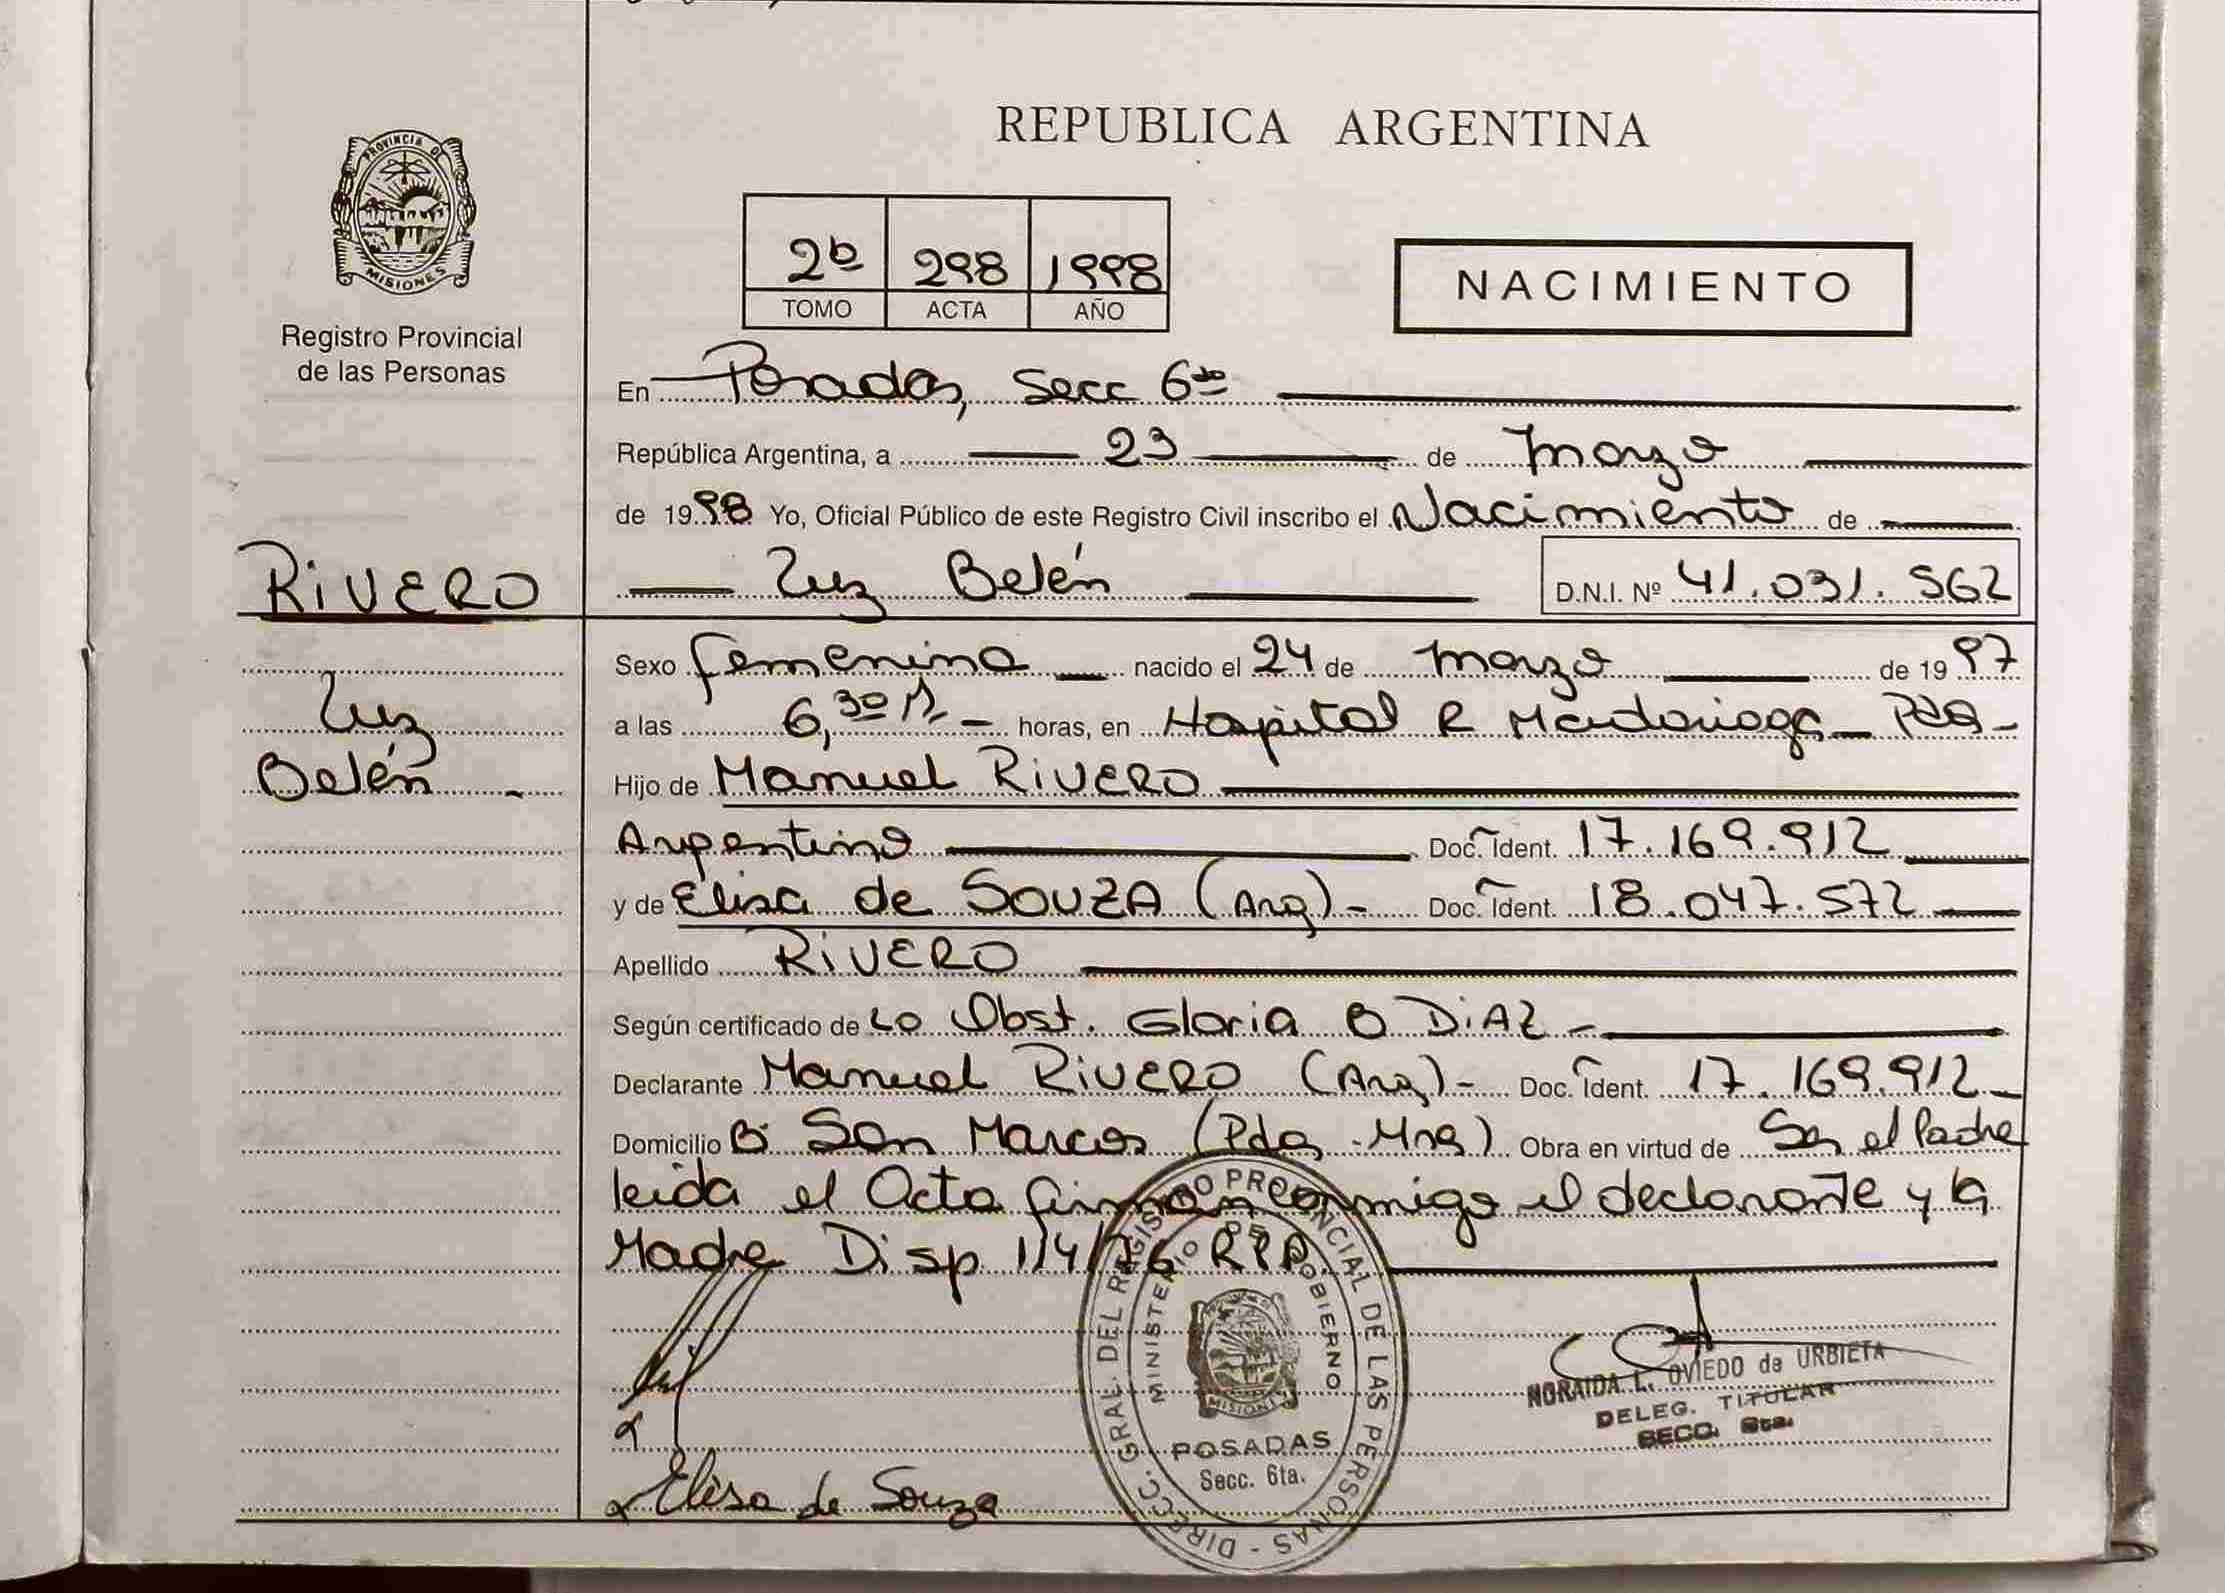 REPUBLICA ARGENTINA
PROVINCIA DE
MISIONES
Registro Provincial
de las Personas
2º 298 1998
TOMO ACTA AÑO
NACIMIENTO
En Posadas, Secc 6ta
República Argentina, a 23 de Marzo
de 1998 Yo, Oficial Público de este Registro Civil inscribo el Nacimiento de
RIVERO Luz Belén D.N.I. Nº 41.031.562
Sexo femenino nacido el 24 de Marzo de 1997
Luz a las 6,30 horas, en Hospital R Mardariaga Pdas
Belén Hijo de Manuel RIVERO
Argentino Doc. Ident. 17.169.912
y de Elisa de SOUZA (Arg) Doc. Ident. 18.047.572
Apellido RIVERO
Según certificado de La Obst. Gloria B DIAZ
Declarante Manuel RIVERO (Arg) Doc. Ident. 17.169.912
Domicilio Bº San Marcos (Pdas - Mns) Obra en virtud de Ser el Padre
leida el Acta firman conmigo el declarante y la
Madre Disp 1/4/76 RPP.
DIRECC. GRAL. DEL REGISTRO PROVINCIAL DE LAS PERSONAS
MINISTERIO DE GOBIERNO
MISIONES
POSADAS
Secc. 6ta.
NORAIDA L. OVIEDO de URBIETA
DELEG. TITULAR
SECC. 6ta.
Elisa de Souza